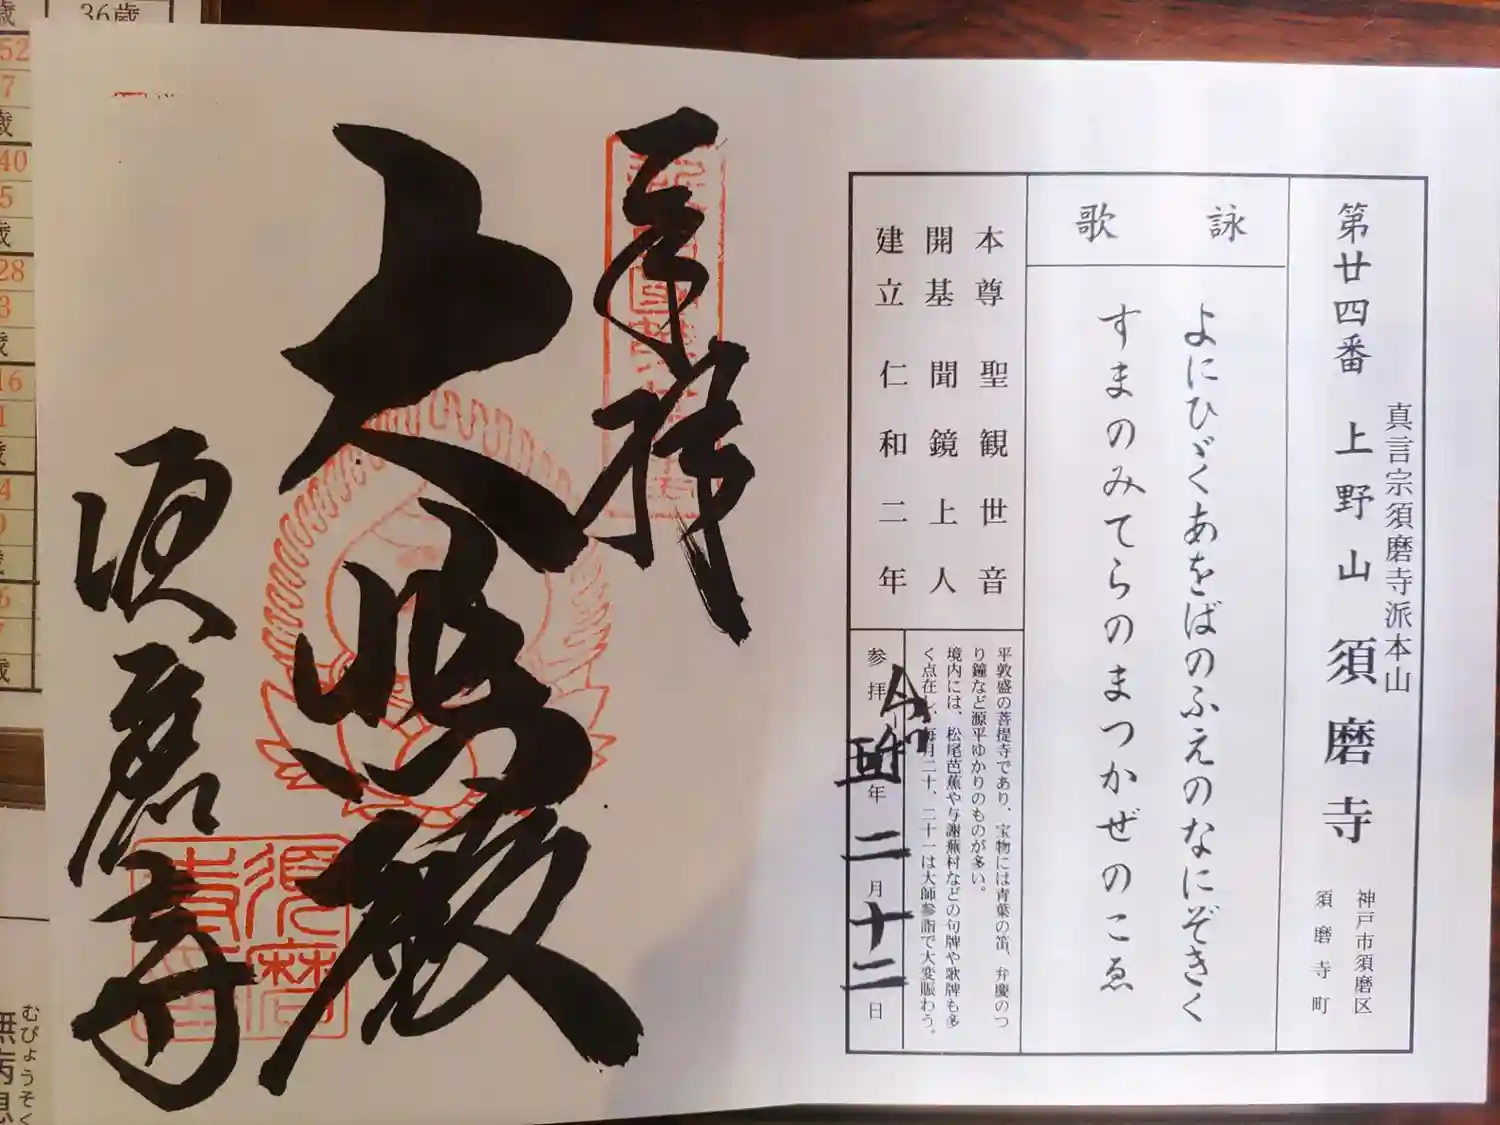 真言宗須磨寺派本山
第廿四番 上野山 須磨寺
神戸市須磨区
須磨寺町
詠歌
よにひゞくあをばのふえのなにぞきく
すまのみてらのまつかぜのこゑ
本尊 聖観世音
開基 聞鏡上人
建立 仁和二年
平敦盛の菩提寺であり、宝物には青葉の笛、弁慶のつ
り鐘など源平ゆかりのものが多い。
境内には、松尾芭蕉や与謝蕪村などの句碑や歌碑も多
く点在し、毎月二十、二十一は大師参詣で大変賑わう。
参拝 年二月十二日
奉拝
大師殿
須磨寺
須磨
36歳
52
7
歳
40
5
歳
28
3
歳
16
1
歳
4
歳
6
7
歳
むびょうそく
無病息